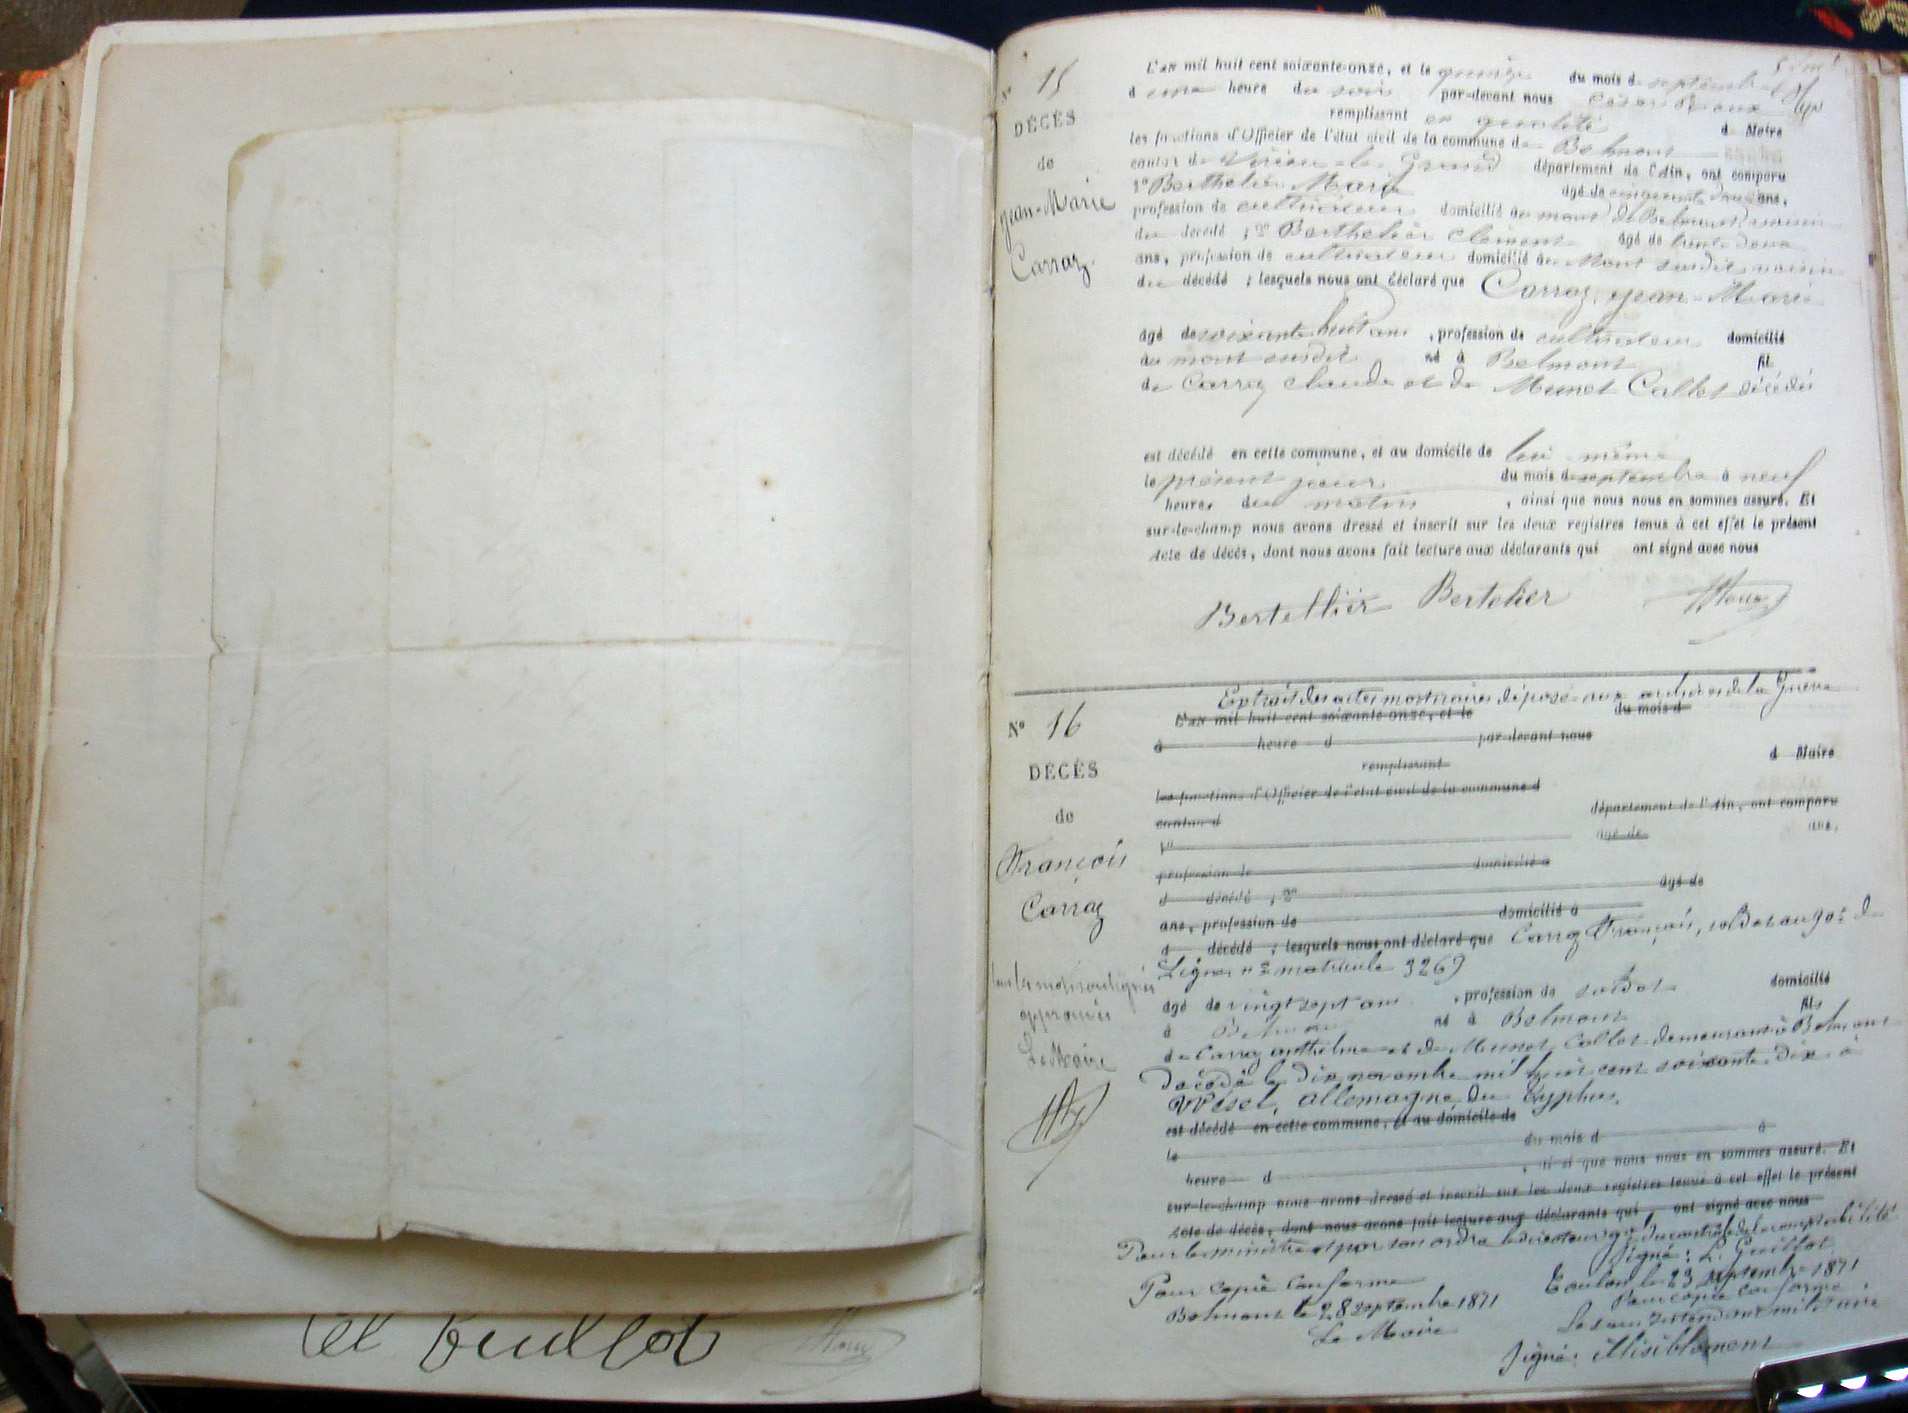 el Guillot
N° 15
DÉCÈS
de
Jean-Marie
Carraz
L'an mil huit cent soixante-onze, et le quinze du mois de septembre
à une heure du soir par-devant nous César Roux
remplissant en qualité de Maire
les fonctions d'Officier de l'état civil de la commune de Belmont
canton de Virieu-le-Grand département de l'Ain, ont comparu
1° Berthelier Marie âgé de cinquante ans,
profession de cultivateur domicilié au mont de Belmont voisin
du décédé ; 2° Berthelier Clément âgé de trente deux
ans, profession de cultivateur domicilié au Mont susdit voisin
du décédé ; lesquels nous ont déclaré que Carraz Jean-Marie
âgé de soixante huit ans, profession de cultivateur domicilié
au mont susdit né à Belmont fil
de Carraz Claude et de Munet Callet décédés
est décédé en cette commune, et au domicile de lui même
le présent jour du mois de septembre à neuf
heures du matin, ainsi que nous nous en sommes assuré. Et
sur-le-champ nous avons dressé et inscrit sur les deux registres tenus à cet effet le présent
acte de décès, dont nous avons fait lecture aux déclarants qui ont signé avec nous
Bertellier Bertelier Roux
N° 16
DÉCÈS
de
François
Carraz
tous les mots soulignés
approuvés
Le Maire
Extrait des actes mortuaires déposé aux archives de la Guerre
L'an mil huit cent soixante-onze, et le du mois d
à heure d par-devant nous
remplissant d Maire
les fonctions d'Officier de l'état civil de la commune d
canton d département de l'Ain, ont comparu
1° âgé de ans,
profession de domicilié à
d décédé ; 2° âgé de
ans, profession de domicilié à
d décédé ; lesquels nous ont déclaré que Carraz François, soldat au 90e de
Ligne n° matricule 3269
âgé de vingt sept ans, profession de soldat domicilié
à Belmont né à Belmont fils
de Carraz anthelme et de Munet Callet demeurant à Belmont
Décédé le dix novembre mil huit cent soixante dix à
Wésel, allemagne, du typhus.
est décédé en cette commune, et au domicile de
le du mois d à
heure d, ainsi que nous nous en sommes assuré. Et
sur-le-champ nous avons dressé et inscrit sur les deux registres tenus à cet effet le présent
acte de décès, dont nous avons fait lecture aux déclarants qui ont signé avec nous
Pour le ministre et par son ordre le directeur gal du contrôle de la comptabilité
Signé : L. Guillot
Pour copie conforme Toulon le 23 septembre 1871
Belmont le 28 septembre 1871 Pour copie conforme
Le Maire Le sous Intendant militaire
Signé : illisiblement